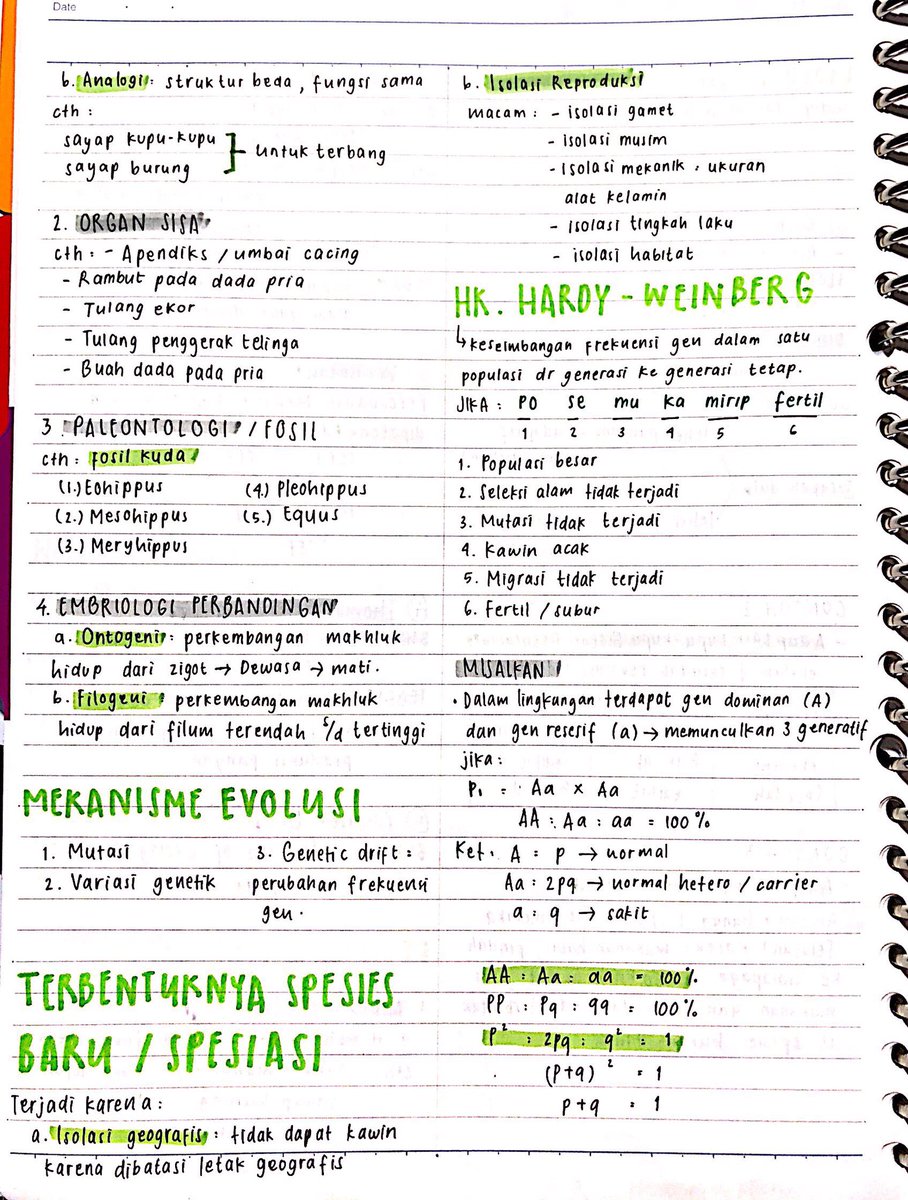 Date
b. Analogi : struktur beda, fungsi sama
cth :
sayap kupu-kupu
sayap burung
untuk terbang
2. ORGAN SISA
cth : - Apendiks / umbai cacing
- Rambut pada dada pria
- Tulang ekor
- Tulang penggerak telinga
- Buah dada pada pria
3. PALEONTOLOGI / FOSIL
cth : fosil kuda
(1.) Eohippus
(2.) Mesohippus
(3.) Meryhippus
(4.) Pleohippus
(5.) Equus
4. EMBRIOLOGI PERBANDINGAN
a. Ontogeni : perkembangan makhluk
hidup dari zigot → Dewasa → mati.
b. Filogeni : perkembangan makhluk
hidup dari filum terendah s/d tertinggi
MEKANISME EVOLUSI
1. Mutasi
2. Variasi genetik
3. Genetic drift :
perubahan frekuensi
gen.
TERBENTUKNYA SPESIES
BARU / SPESIASI
Terjadi karena :
a. Isolasi geografis : tidak dapat kawin
karena dibatasi letak geografis
b. Isolasi Reproduksi
macam : - isolasi gamet
- isolasi musim
- Isolasi mekanik : ukuran
alat kelamin
- isolasi tingkah laku
- isolasi habitat
HK. HARDY - WEINBERG
↳ keseimbangan frekuensi gen dalam satu
populasi dr generasi ke generasi tetap.
JIKA : PO se mu ka mirip fertil
1 2 3 4 5 6
1. Populasi besar
2. Seleksi alam tidak terjadi
3. Mutasi tidak terjadi
4. kawin acak
5. Migrasi tidak terjadi
6. Fertil / subur
MISALKAN
• Dalam lingkungan terdapat gen dominan (A)
dan gen resesif (a) → memunculkan 3 generatif
jika :
P1 = Aa × Aa
AA : Aa : aa = 100%
Ket. A = p → normal
Aa : 2pq → normal hetero / carrier
a : q → sakit
AA : Aa : aa = 100%
PP : Pq : qq = 100%
P² : 2pq : q² = 1
(P+q)² = 1
p+q = 1